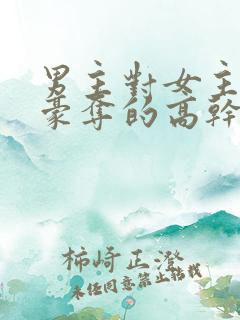 男主對女主
豪奪的高幹
柿崎正澄
未任同意禁止轉載